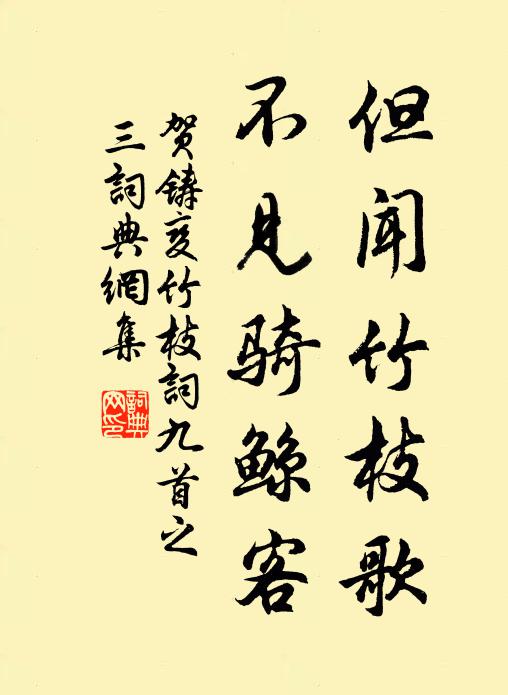 但闻竹枝歌
不见骑鲸客
贺铸变竹枝詞九首之
三詞典網集
詞典
网印